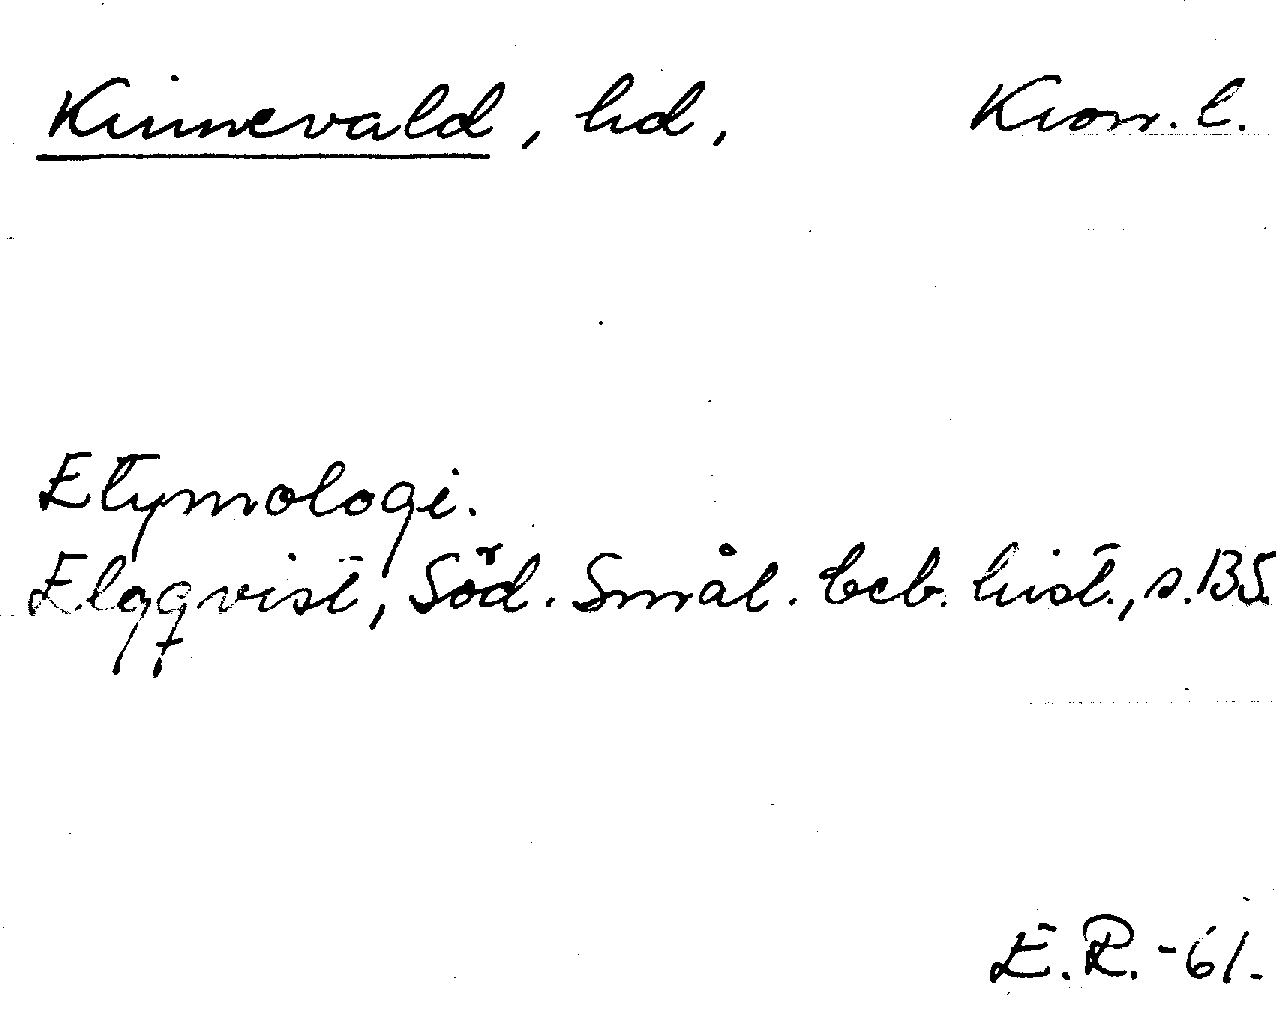 Kinnevald, hd, Kron. l.
Etymologi.
Elgqvist, Söd. Smål. beb. hist., s. 135
E.R. -61.